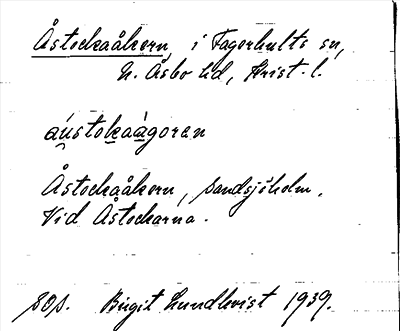 Åstockaåkern, i Fagerhults sn,
N. Åsbo hd, Krist. l.
aústokaàgoren
Åstockaåkern, Sandsjöholm.
Vid Åstockarna.
sop. Birgit Lundkvist 1939.